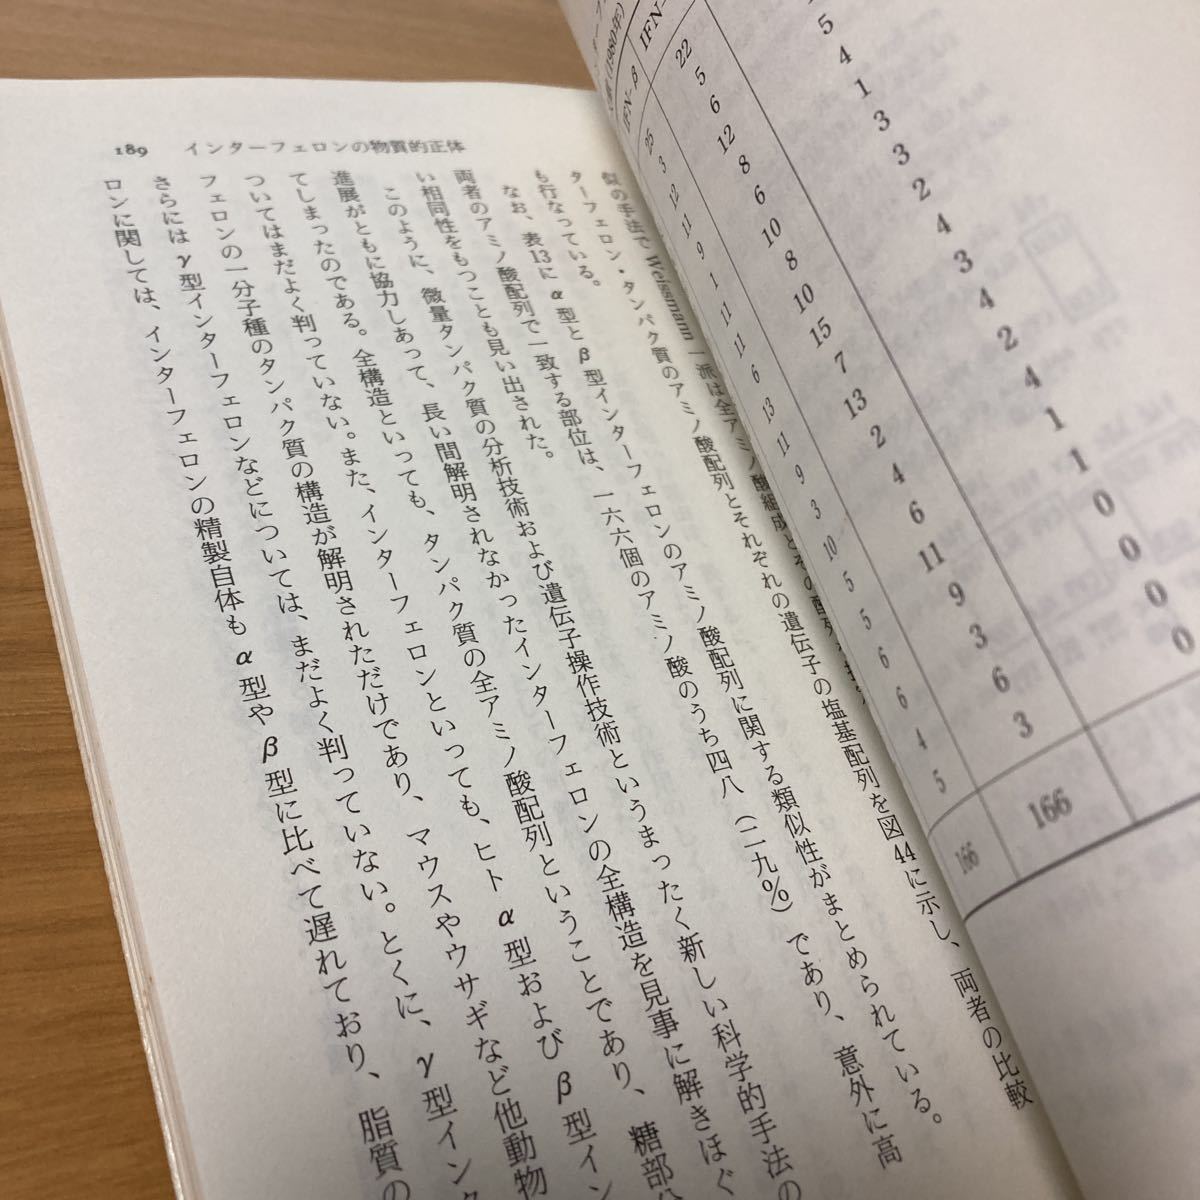 IFN-
22
5
6
12
8
6
10
8
10
15
7
13
2
4
6
11
9
3
6
3
166
(1980年)
IFN-β
25
3
12
11
9
1
11
11
6
13
11
9
3
10
5
5
6
6
4
5
166
5
4
1
3
3
2
4
3
4
2
4
1
1
0
0
0
0
189 インターフェロンの物質的正体
似の手法で Weissmann 一派は全アミノ酸組成とその配列
ターフェロン・タンパク質のアミノ酸配列とそれぞれの遺伝子の塩基配列を図44に示し、両者の比較
も行なっている。
なお、表13にα型とβ型インターフェロンのアミノ酸配列に関する類似性がまとめられている。
両者のアミノ酸配列で一致する部位は、一六六個のアミノ酸のうち四八(二九%)であり、意外に高
い相同性をもつことも見い出された。
このように、微量タンパク質の分析技術および遺伝子操作技術というまったく新しい科学的手法の
進展がともに協力しあって、長い間解明されなかったインターフェロンの全構造を見事に解きほぐ
てしまったのである。全構造といっても、タンパク質の全アミノ酸配列ということであり、糖部分
ついてはまだよく判っていない。また、インターフェロンといっても、ヒトα型およびβ型イン
フェロンの一分子種のタンパク質の構造が解明されただけであり、マウスやウサギなど他動物
さらにはγ型インターフェロンなどについては、まだよく判っていない。とくに、γ型インタ
ロンに関しては、インターフェロンの精製自体もα型やβ型に比べて遅れており、脂質の